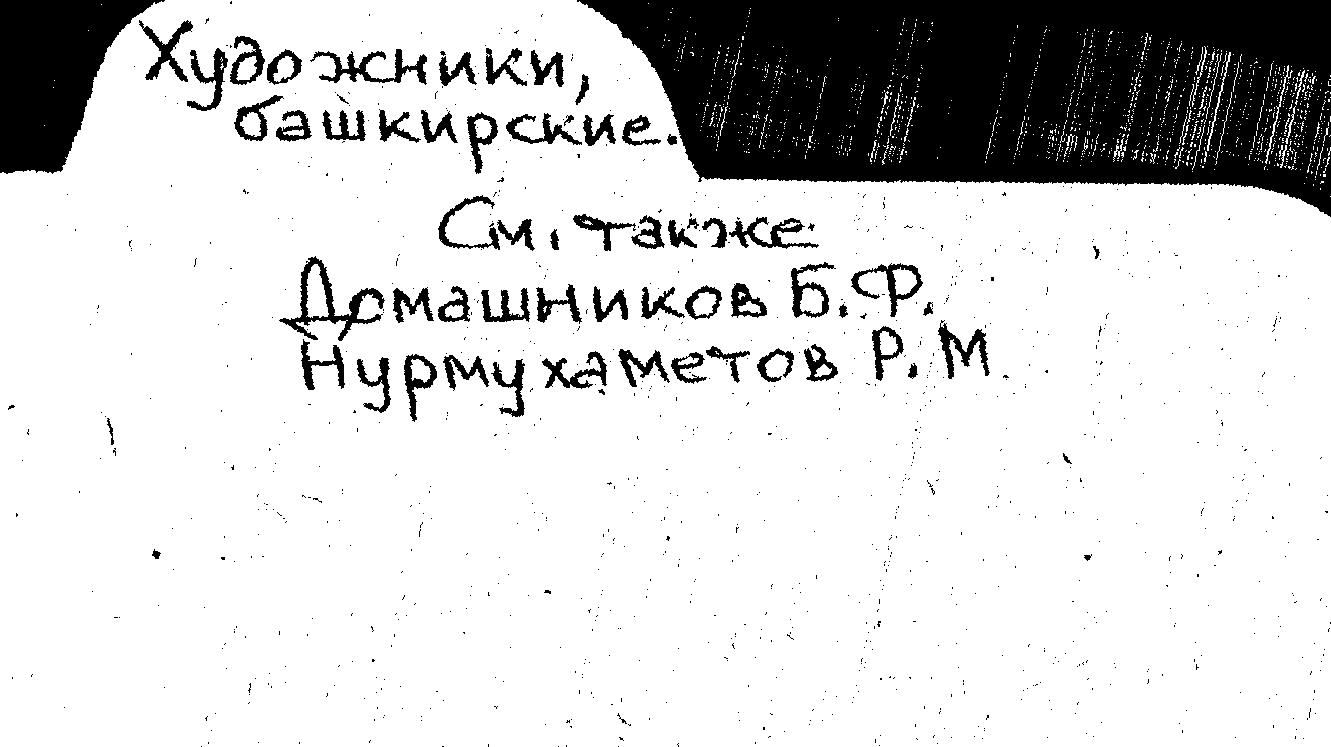 Художники,
башкирские.
См. также
Домашников Б.Ф.
Нурмухаметов Р.М